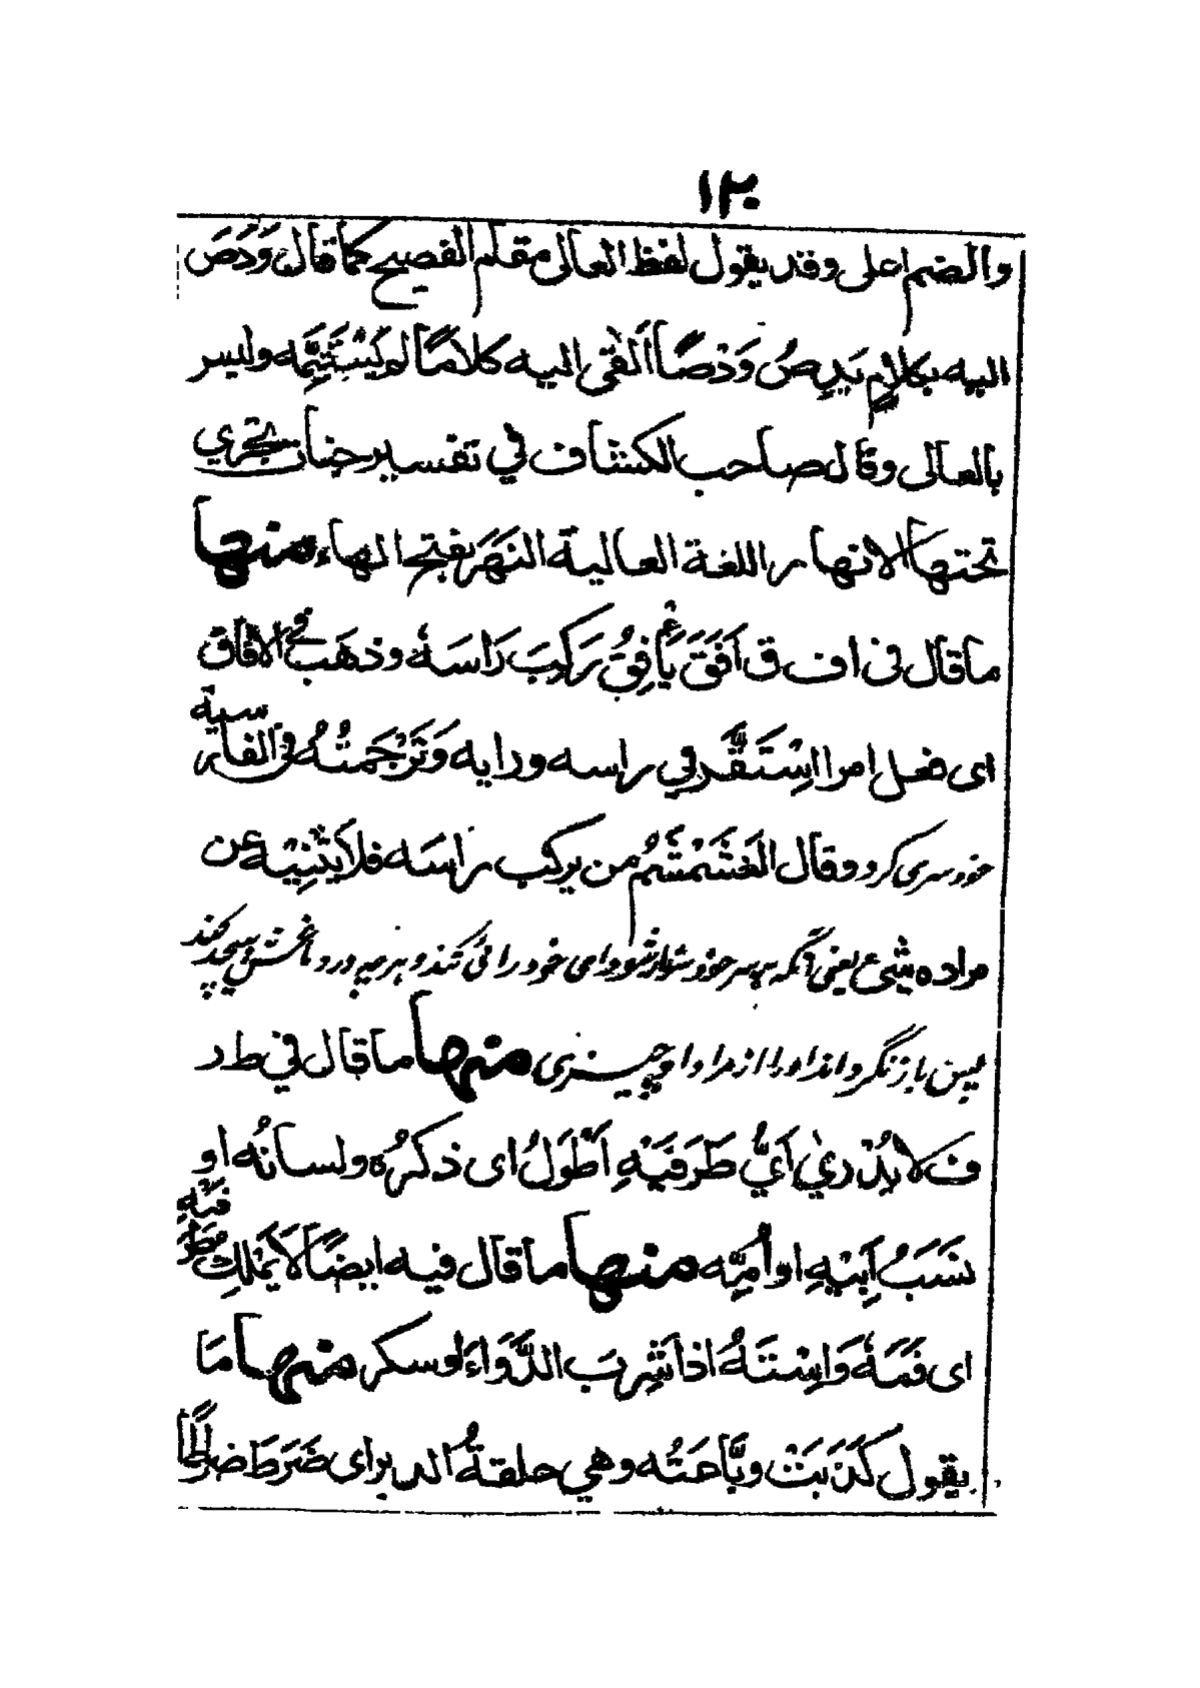 ١٣٠
والضم اعلى وقد يقول لفظ العالى مقام الفصيح كما قال وَدَصَ
اليه بكلامٍ يَدِصُ وَدْصًا اَلْقٰى اليه كلامًا لم يَسْتَتِمَّه وليس
بالعالى وقال صاحب الكشاف في تفسير جنات تجرى
تحتها الانهار اللغة العالية النَهَرَ بفتح الهاء منها
ما قال فى اف ق اَفَقَ يَأفِقُ رَكِبَ رَاسَهٗ وذهَب فى الآفاق
اى فعل امرا اسْتَقَّر في راسه ورايه وَتَرْجَمتُهُ فى الفارسية
خود سرى كرد وقال الغَشَمْشَمُ من يركب راسَه فلا يَثْنِيْه عن
مراده شىء يعنى آنكه بر سر خود سوار شود اى خود رائى كند و هر چه در دماغش پيچد كند
پس باز نگرداند اورا از مراد او چيزى منها ما قال في ط ر
ف لا يُدْرىٰ اَيُّ طَرَفَيْهِ اَطْوَلُ اى ذكرُه ولسانُه او
نَسَبُ اَبِيْهِ او اُمِّه منها ما قال فيه ايضًا لا يَمْلِك طَرَفَيْهِ
اى فَمَهٗ وَاسْتَهُ اذا شَرِبَ الدَّوَاءَ او سكر منها مَا
يقول كَذَبَتْ وبَّاحَتُه وهي حلقةُ الدبر اى ضَرَطَ ضراطًا